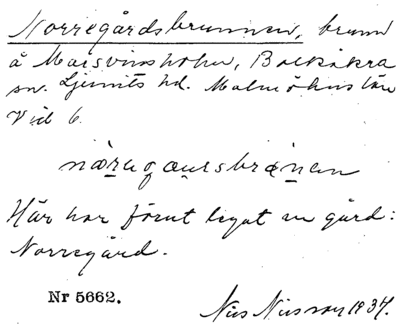 Norregårdsbrunnen, brunn
å Marsvinsholm, Balkåkra
sn. Ljunits hd. Malmöhus län
Vid 6.
Här har förut legat en gård:
Norregård.
Nr 5662.
Nils Nilsson 1934.